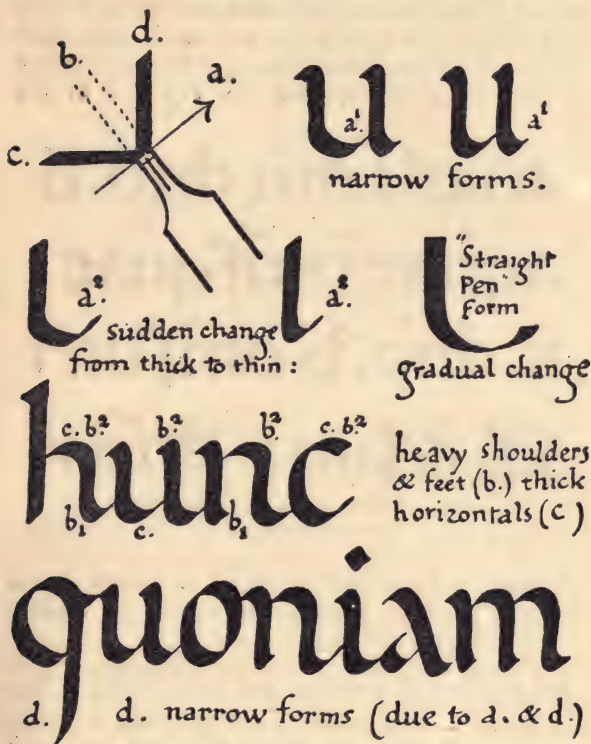 d.
b. a.
c.
u u
a¹. a¹
narrow forms.
l a². l a².
"Straight
Pen"
Form
sudden change
from thick to thin :
gradual change
c. b². b². b². c. b².
hunc
b₁ c. b₁
heavy shoulders
& feet (b.) thick
horizontals (c)
quoniam
d. d. narrow forms (due to a. & d.)